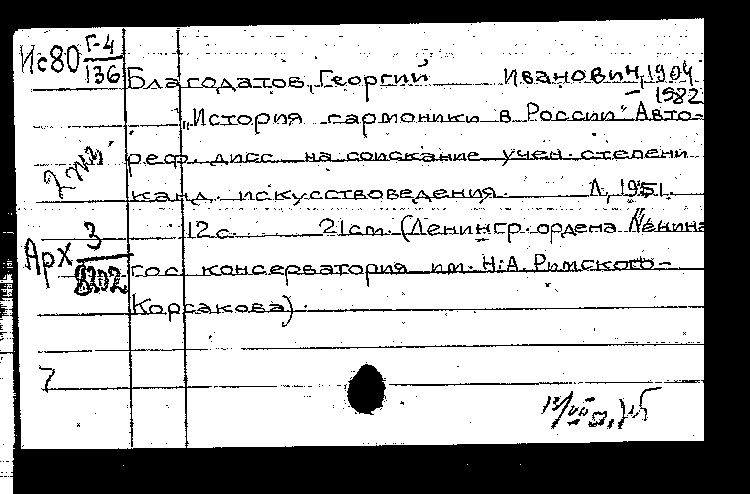 Ис80 Г-4
136
Благодатов, Георгий Иванович, 1904
-1982
„История гармоники в России" Авто-
реф. дисс. на соискание учен. степени
2 экз.
канд. искусствоведения. Л, 1951.
12 с. 21 cm. (Ленингр. ордена Ленина
Арх 3
8202
гос. консерватория им. Н.А. Римского-
Корсакова).
7